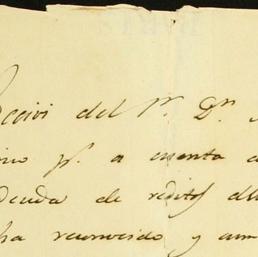 Recivi del Sr. Dn.
ino pr. a cuenta d
deuda de reditos
ha reconocido y aum